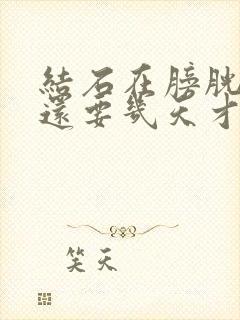 結石在膀胱
還要幾天才
笑天